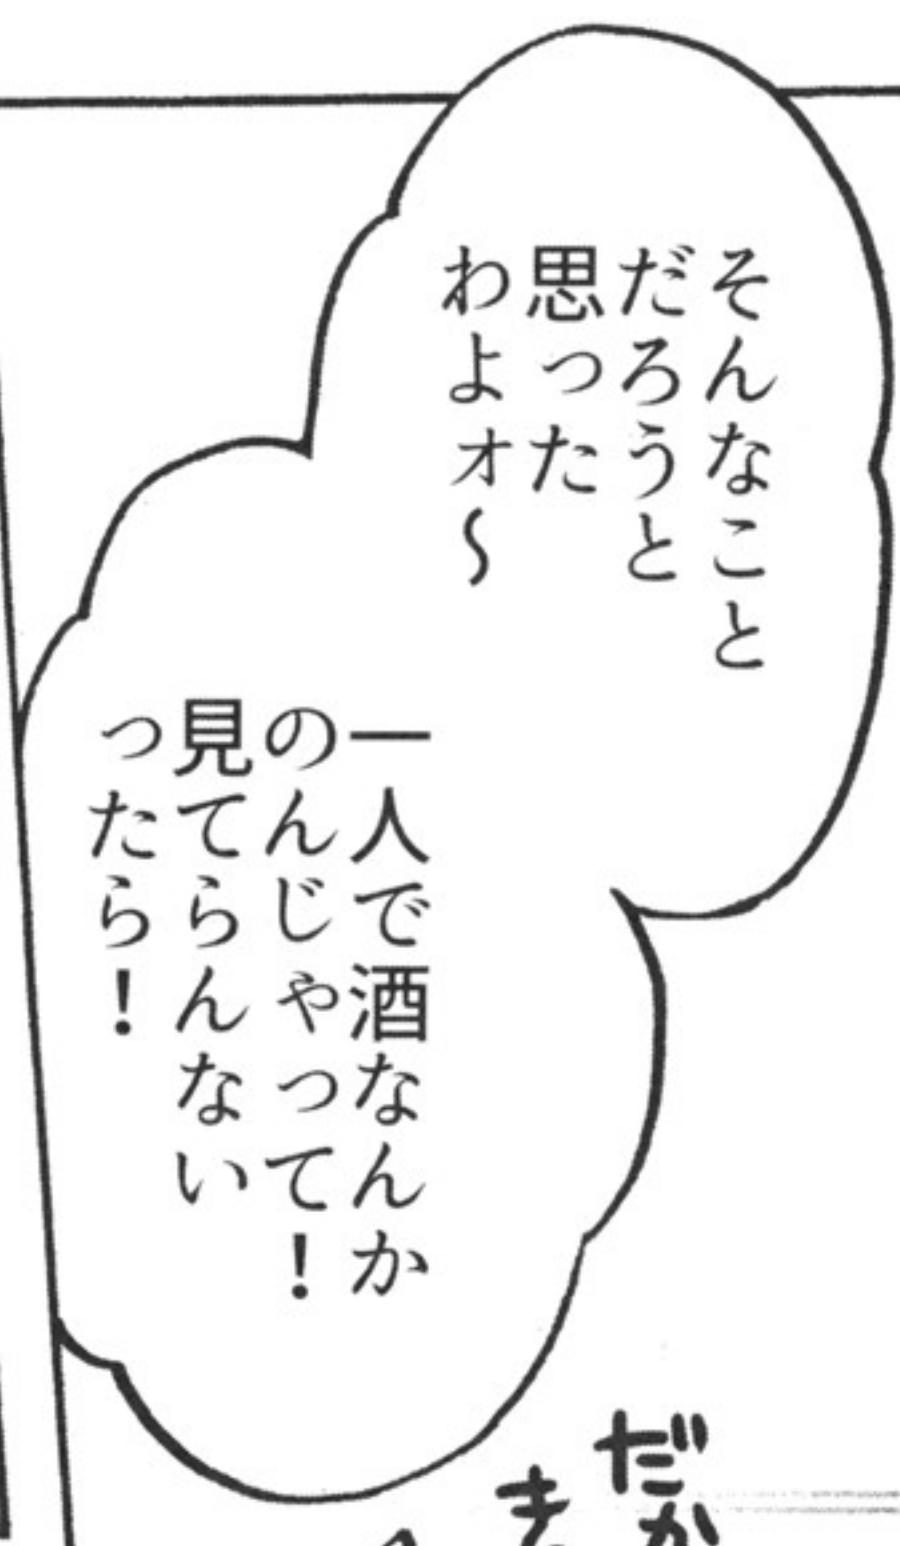 そんなこと
だろうと
思った
わよォ～
一人で酒なんか
のんじゃって！
見てらんない
ったら！
だか